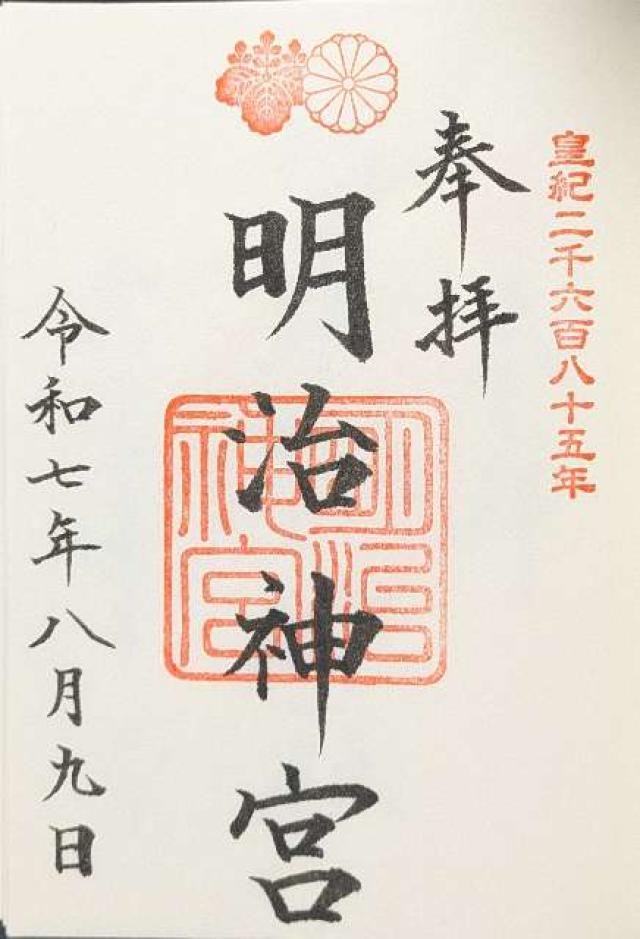 皇紀二千六百八十五年
奉拝
明治神宮
明治
神宮
令和七年八月九日